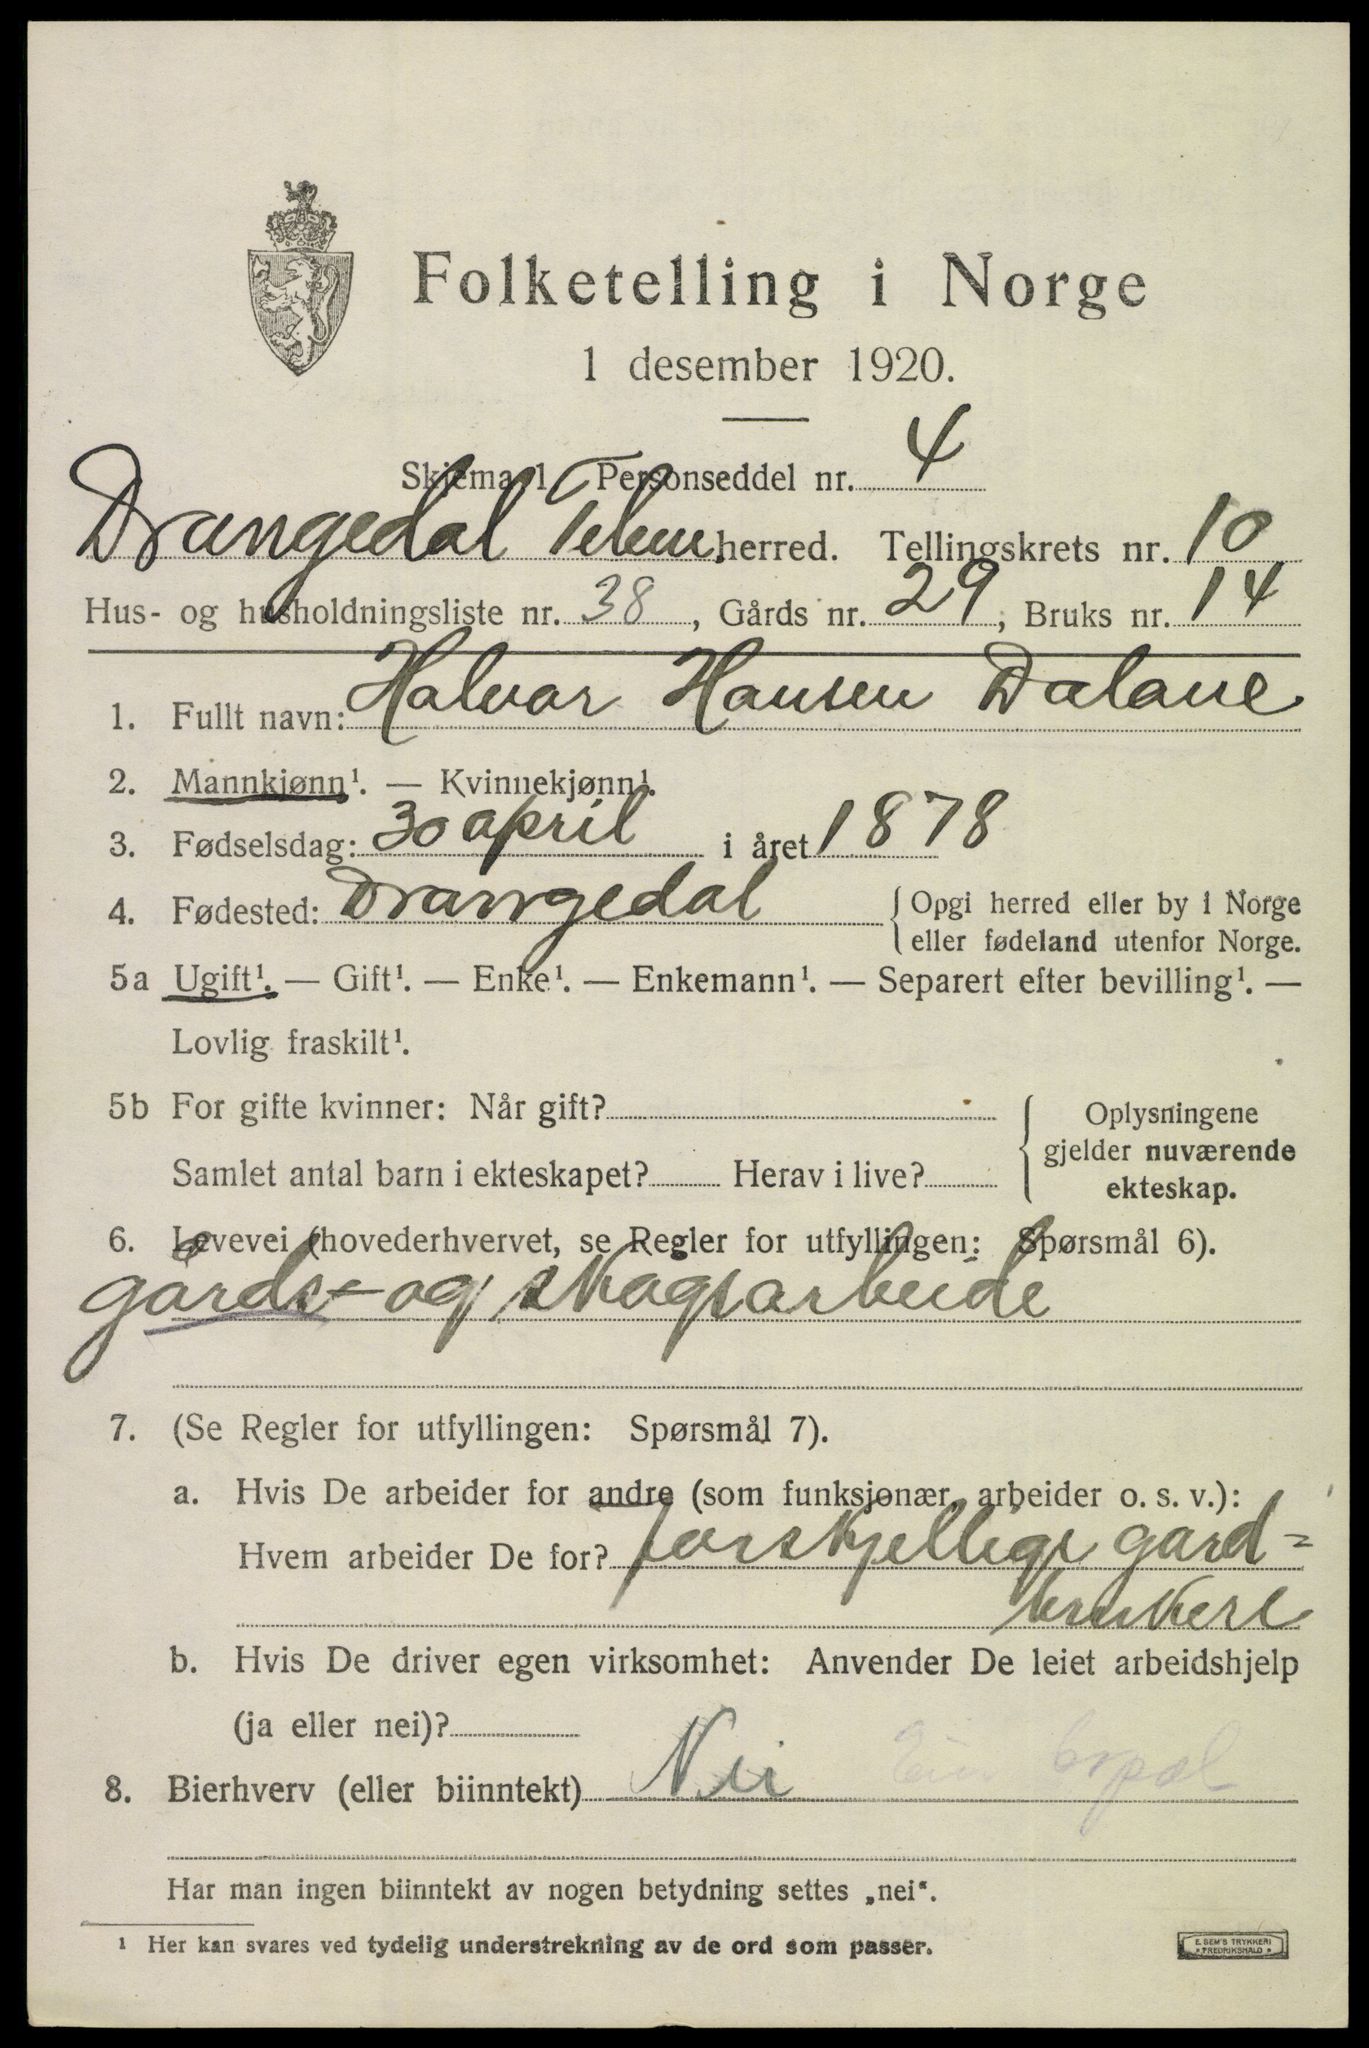 Folketelling i Norge
1 desember 1920.
Skjema 1 Personseddel nr. 4
Drangedal Telem. herred. Tellingskrets nr. 10
Hus- og husholdningsliste nr. 38, Gårds nr. 29, Bruks nr. 14
1. Fullt navn: Halvor Hansen Dalane
2. Mannkjønn¹. — Kvinnekjønn¹.
3. Fødselsdag: 30 april i året 1878
4. Fødested: Drangedal { Opgi herred eller by i Norge
eller fødeland utenfor Norge.
5a Ugift¹. — Gift¹. — Enke¹. — Enkemann¹. — Separert efter bevilling¹. —
Lovlig fraskilt¹.
5b For gifte kvinner: Når gift? { Oplysningene
gjelder nuværende
Samlet antal barn i ekteskapet? Herav i live? ekteskap.
6. Levevei (hovederhvervet, se Regler for utfyllingen: Spørsmål 6).
gårds- og skogsarbeide
7. (Se Regler for utfyllingen: Spørsmål 7).
a. Hvis De arbeider for andre (som funksjonær, arbeider o. s. v.):
Hvem arbeider De for? forskjellige gard=
brukere
b. Hvis De driver egen virksomhet: Anvender De leiet arbeidshjelp
(ja eller nei)?
8. Bierhverv (eller biinntekt) Nei
Har man ingen biinntekt av nogen betydning settes „nei“.
¹ Her kan svares ved tydelig understrekning av de ord som passer.
E. SEM'S TRYKKERI
FREDRIKSHALD